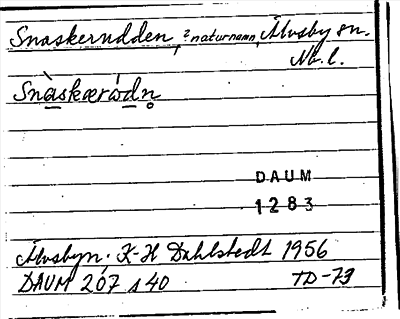 Snaskerudden, ?naturnamn, Älvsby sn.
Nb. l.
Snàskæródn̥
DAUM
1283
Älvsbyn. K-H Dahlstedt 1956
DAUM 207 s 40 TD-73